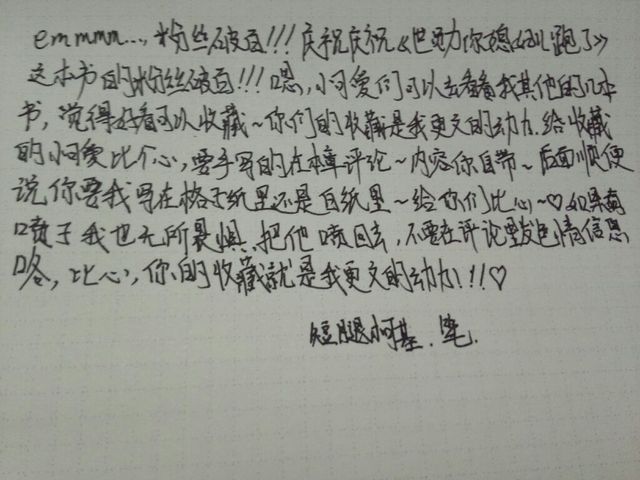 emmmm..., 粉丝破百!!!庆祝庆祝《巴啦你媳妇儿跑了》
这本书的粉丝破百!!!嗯,小可爱们可以去看看我其他的几本
书,觉得好看可以收藏~你们的收藏是我更文的动力.给收藏
的小可爱比个心,要手写的在本章评论~内容你自带~后面顺便
说你要我写在格子纸里还是白纸里~给你们比心~♡如果有
喷子我也无所畏惧.把他喷回去,不要在评论里发色情信息
咯,比心,你的收藏就是我更文的动力!!!♡
短腿小柯基.笔.